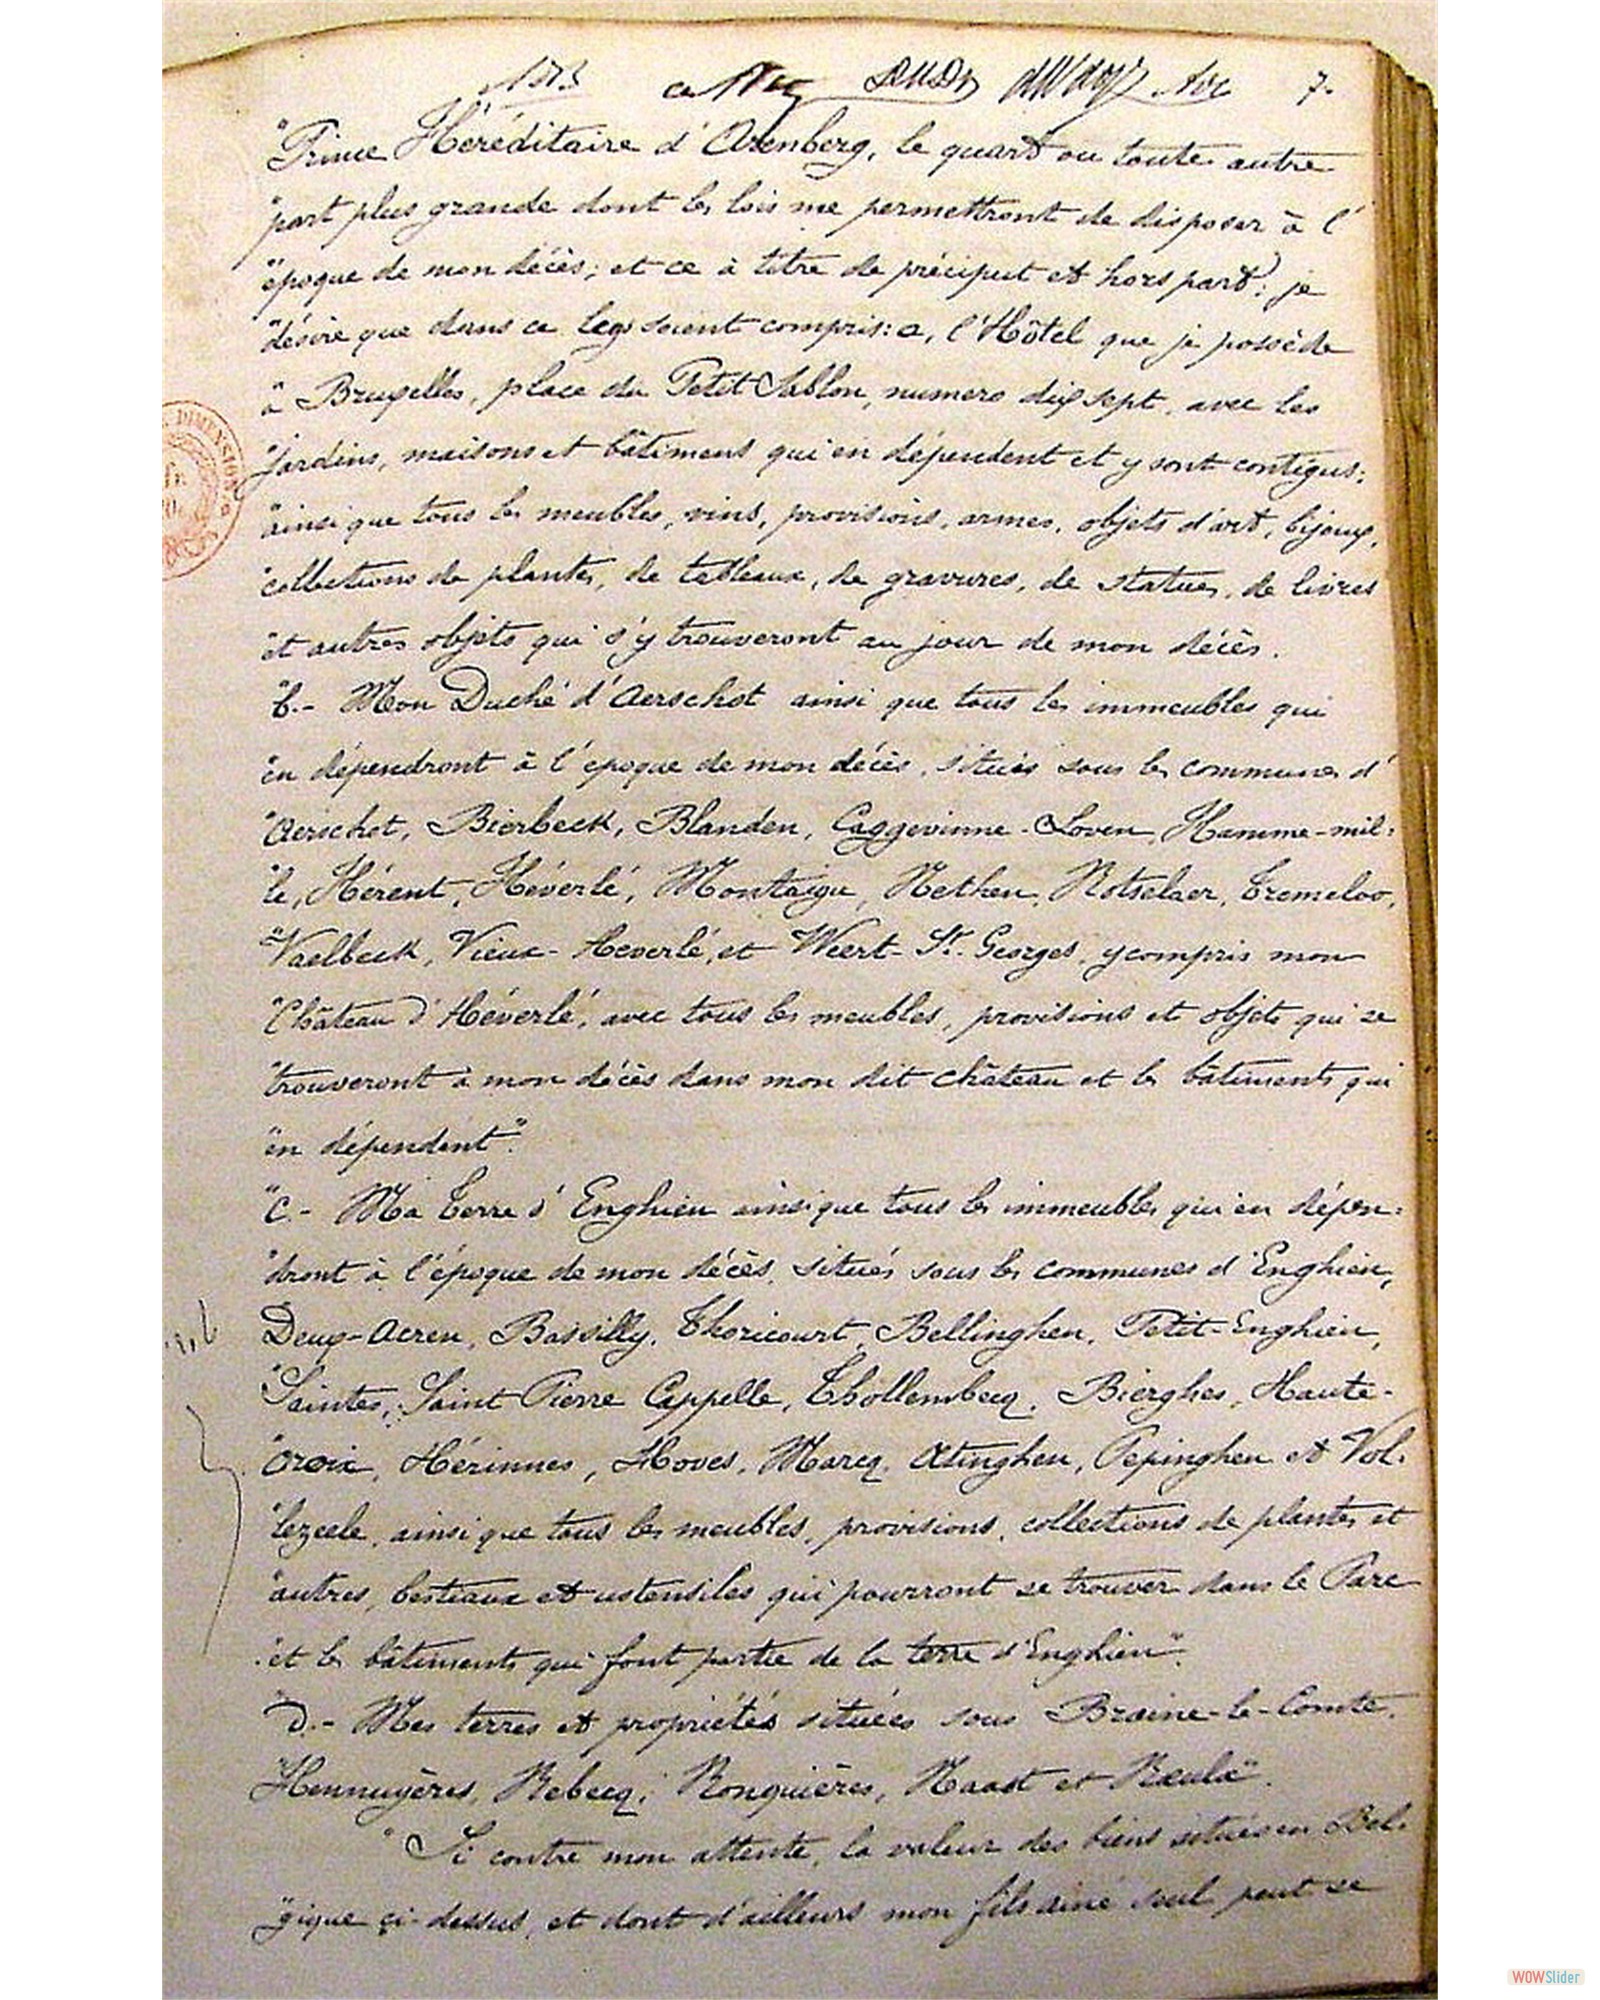 7.
"Prince Héréditaire d'Arenberg, le quart ou toute autre
"part plus grande dont les lois me permettront de disposer à l'
"époque de mon décès; et ce à titre de préciput et hors part; je
"désire que dans ce legs soient compris: a, l'Hôtel que je possède
"à Bruxelles, place du Petit Sablon, numero dix sept, avec les
"jardins, maisons et bâtimens qui en dépendent et y sont contigus;
"ainsi que tous les meubles, vins, provisions, armes, objets d'art, bijoux,
"collections de plantes, de tableaux, de gravures, de statues, de livres
"et autres objets qui s'y trouveront au jour de mon décès.
"b.- Mon Duché d'Aerschot ainsi que tous les immeubles qui
"en dépendront à l'époque de mon décès, situés sous les communes d'
"Aerschot, Bierbeek, Blanden, Caggevinne-Loven, Hamme-mil=
"le, Hérent, Héverlé, Montaigu, Nethen, Rotselaer, Tremeloo,
"Vaelbeek, Vieux-Heverlé, et Weert-St. Georges, y compris mon
"Château d'Héverlé, avec tous les meubles, provisions et objets qui se
"trouveront à mon décès dans mon dit château et les bâtiments qui
"en dépendent".
"C.- Ma terre d'Enghien ainsi que tous les immeubles qui en dépen=
"dront à l'époque de mon décès, situés sous les communes d'Enghien,
Deux-Acren, Bassilly, Thoricourt, Bellinghen, Petit-Enghien,
"Saintes, Saint Pierre Cappelle, Thollembecq, Bierghes, Haute-
"croix, Hérinnes, Hoves, Marcq, Pepinghen et Vol-
"lezeele, ainsi que tous les meubles, provisions, collections de plantes et
"autres, bestiaux et ustensiles qui pourront se trouver dans le Parc
"et les bâtiments qui font partie de la terre d'Enghien".
"D.- Mes terres et propriétés situées sous Braine-le-Comte,
"Hennuyères, Rebecq, Ronquières, Naast et Rœulx".
"Si contre mon attente, la valeur des biens situés en Bel-
"gique çi-dessus, et dont d'ailleurs mon fils ainé seul peut se
WOWSlider